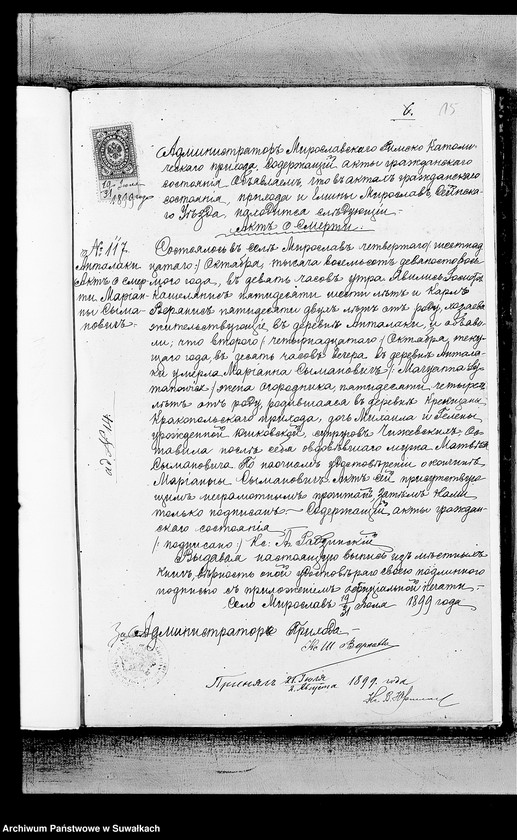 6. 15
19/31 Июля
1899 года
Администраторъ Мирославскаго Римско Католи-
ческаго прихода, содержащій акты гражданскаго
состоянія Объявляемъ, что въ актахъ гражданскаго
состоянія, прихода и гмины Мирославъ, Сейнска-
го Уѣзда, находится слѣдующій:
Актъ о Смерти.
№ 117
Анталаки
Актъ о смер-
ти Маріан-
ны Сыма-
новичъ.
ad № 114
Состоялось въ селѣ Мирославъ четвертаго /шестнад-
цатаго/ Октября, тысяча восемьсотъ девяносто
года, въ девять часовъ утра. Явились
пятидесяти шести лѣтъ и Карлъ
пятидесяти двухъ лѣтъ отъ роду, хозяева
жительствующіе въ деревнѣ Анталаки, и объяви-
ли, что второго /четырнадцатаго/ Октября, теку-
щаго года, въ десять часовъ вечера, въ деревнѣ Антала-
ки умерла Маріанна Сымановичъ /: Маргарта
/жена огородника, пятидесяти четырехъ
лѣтъ отъ роду, родившаяся въ деревнѣ
Кракопольскаго прихода, дочь Михаила и Гелены
урожденной супруговъ Чижевскихъ. Ос-
тавила послѣ себя овдовѣвшаго мужа Матвѣя
Сымановича. По настоящемъ удостовѣреніи о кончинѣ
Маріанны Сымановичъ Актъ сей присутствую-
щимъ неграмотнымъ прочитанъ, затѣмъ Нами
только подписанъ. Содержащій акты граждан-
скаго состоянія
/подписано:/ Кс: А.
Выдавая настоящую выпись изъ мѣстныхъ
книгъ, вѣрность оной удостовѣряю своею подлинною
подписью съ приложеніемъ оффиціальной печати.
Село Мирославъ 19/31 Іюля 1899 года
За Администратора Прихода
Кс.
Принялъ 21 Іюля/2 Августа 1899 года
Кс.
Archiwum Państwowe w Suwałkach